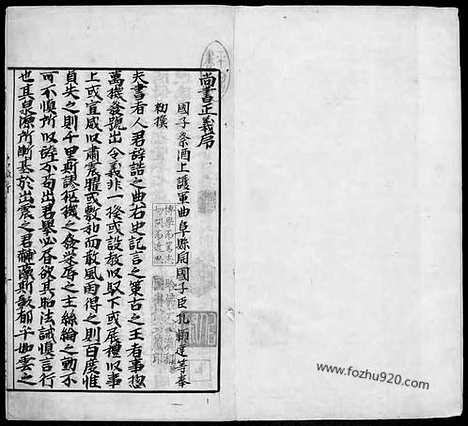 尚書正義序
國子祭酒上護軍曲阜縣開國子臣孔穎達等奉
勑撰
夫書者人君辭誥之典右史記言之策古之王者事揔
萬機發號出令義非一揆或設教以馭下或展禮以事
上或宣威以肅震曜或敷和而散風雨得之則百度惟
貞失之則千里斯謬樞機之發榮辱之主絲綸之動不
可不慎所以辭不苟出君舉必書欲其昭法誡慎言行
也其泉源所漸基於出震之君黼藻斯彰郁乎如雲之
www.fozhu920.com